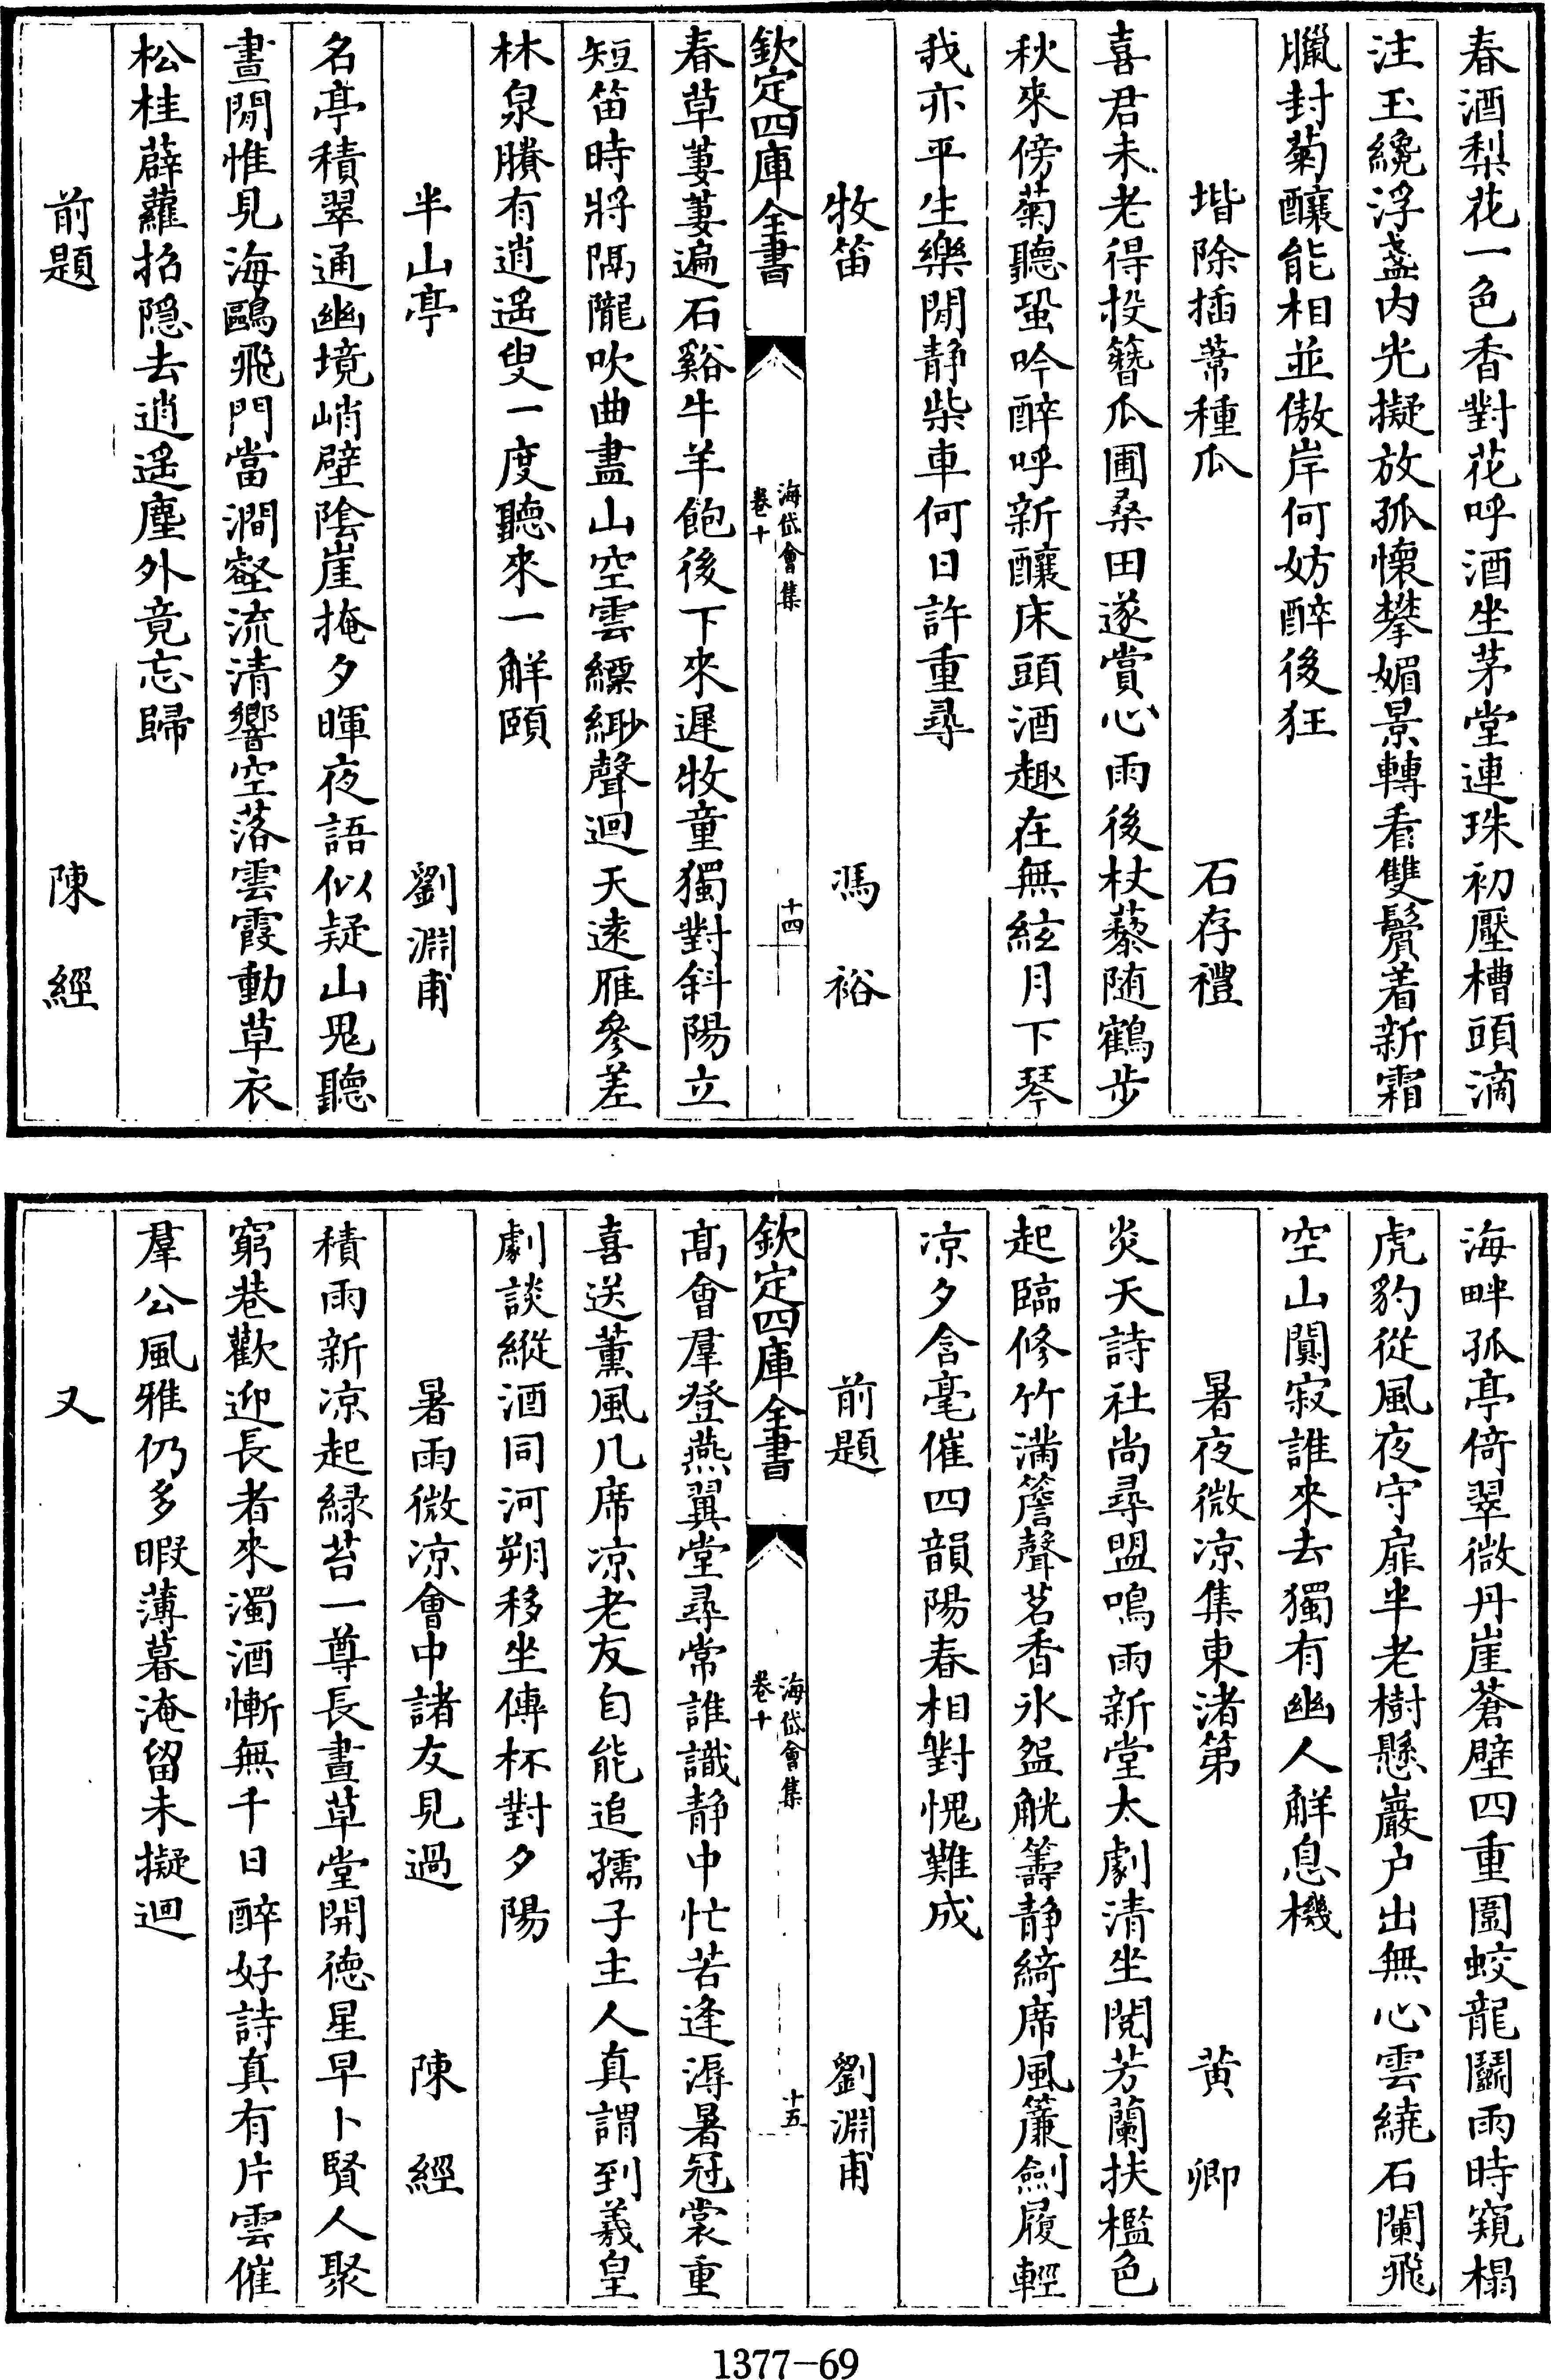 春酒梨花一色香對花呼酒坐茅堂連珠初壓槽頭滴
注玉纔浮盞内光擬放孤懷攀媚景轉看雙鬢着新霜
臘封菊釀能相並傲岸何妨醉後狂
堦除插蒂種瓜　石存禮
喜君未老得投簪瓜圃桑田遂賞心雨後杖藜随鶴步
秋來傍菊聽蛩吟醉呼新釀床頭酒趣在無絃月下琴
我亦平生樂閒静柴車何日許重尋
牧笛　馮裕
欽定四庫全書
海岱會集
卷十
十四
春草萋萋遍石谿牛羊飽後下來遲牧童獨對斜陽立
短笛時將隔隴吹曲盡山空雲縹緲聲迴天遠雁參差
林泉賸有逍遥叟一度聽來一觧頤
半山亭　劉淵甫
名亭積翠通幽境峭壁陰崖掩夕暉夜語似疑山鬼聽
晝閒惟見海鷗飛門當澗壑流清響空落雲霞動草衣
松桂薜蘿招隐去逍遥塵外竟忘歸
前題　陳經
海畔孤亭倚翠微丹崖蒼壁四重圍蛟龍鬬雨時窺榻
虎豹從風夜守扉半老樹懸巖户出無心雲繞石闌飛
空山闃寂誰來去獨有幽人觧息機
暑夜微凉集東渚第　黄卿
炎天詩社尚尋盟鳴雨新堂太劇清坐閱芳蘭扶檻色
起臨修竹滿簷聲茗香氷盌觥籌静綺席風簾劍履輕
凉夕含毫催四韻陽春相對愧難成
前題　劉淵甫
欽定四庫全書
海岱會集
卷十
十五
高會羣登燕翼堂尋常誰識静中忙若逢溽暑冠裳重
喜送薰風几席凉老友自能追孺子主人真謂到羲皇
劇談縱酒同河朔移坐傳杯對夕陽
暑雨微凉會中諸友見過　陳經
積雨新凉起緑苔一尊長晝草堂開德星早卜賢人聚
窮巷歡迎長者來濁酒慚無千日醉好詩真有片雲催
羣公風雅仍多暇薄暮淹留未擬迴
又
1377-69